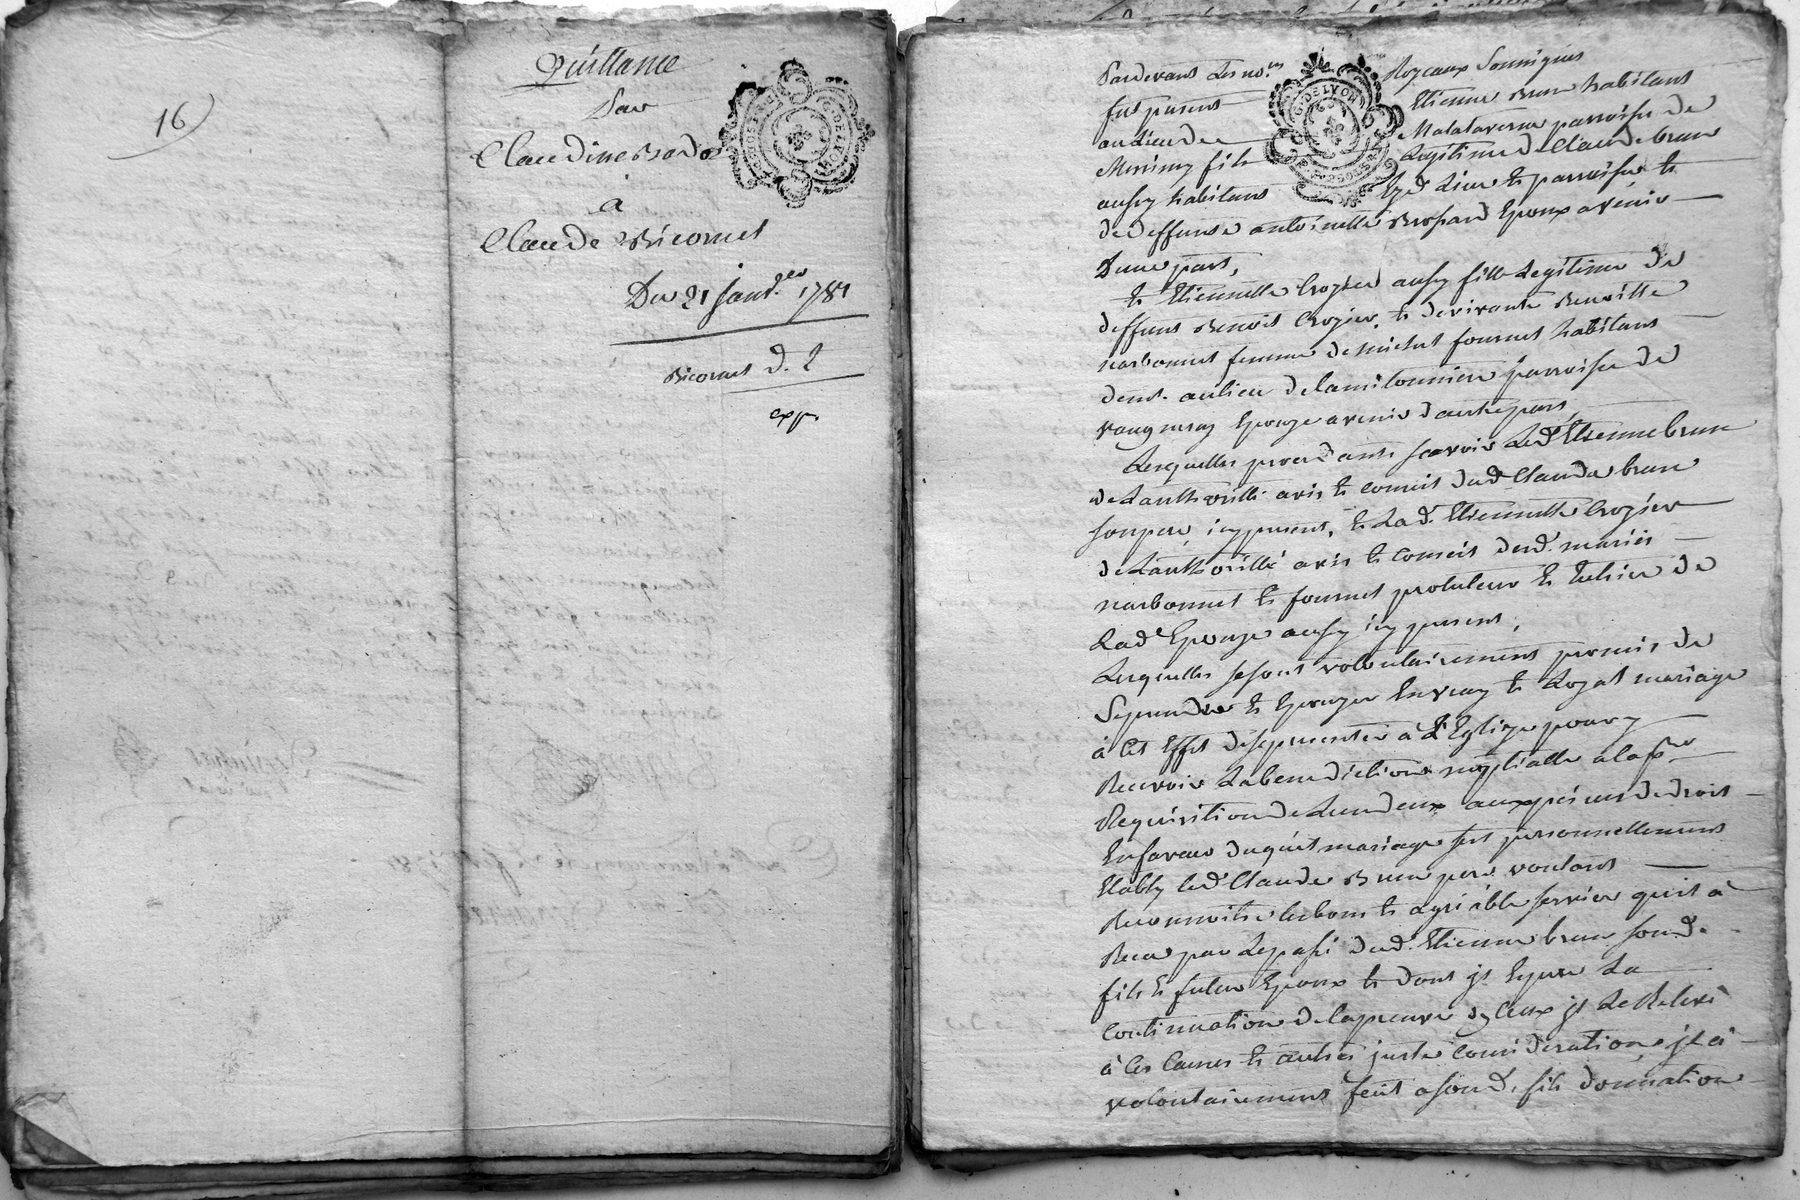 16
Quittance
Par
Claudine
à
Claude Bicornet
Du 21 janv.er 1781
Bicornet d. 2
exp.
G. DE LYON
Pardevant Les no.res Royeaux Soussignes
fut present Etienne Brun habitant
au Lieu de Malataverne parroisse de
Messimy fils Legitime de Claude brun
aussy habitant Esd. Lieu et parroisse et
de deffunte antoinette Brossard Epoux avenir
Dune part,
Et Etiennette Crozier aussy fille Legitime de
deffunt Benoit Crozier, et de vivante Benoitte
narbonnet femme de michel fournet habitans
dem.t au lieu de la mitonniere parroisse de
vaugneray Epouze avenir dautre part,
Lesquelles procedants scavoir Led. Etienne brun
de Lauthorité avis et conseil dud. Claude brun
son pere icy present, et Lad. Etiennette Crozier
de Lauthorité avis et conseil desd. mariés
narbonnet et fournet protuteur et tutrice de
Lad. Epouze aussy icy present,
Lesquelles se sont volontairement promis de
Se prendre et Epouzer En vray et Loyal mariage
à cet Effet de se presenter à L'Eglize pour y
Recevoir La benediction nuptialle a la p.re
Requisition de Lun deux aux peines de droit
En faveur duquel mariage sest personnellement
Etably led. Claude Brun pere voulant
Reconnoitre les bons et agreable service quil à
Recu par Le passé dud. Etienne brun son d.
fils et futur Epoux et dont jl Espere La
continuation de la preuve dyceux jl Le Relevé
à ces Causes et autres juste consideration, jl à
volontairement fait a son d. fils donnation